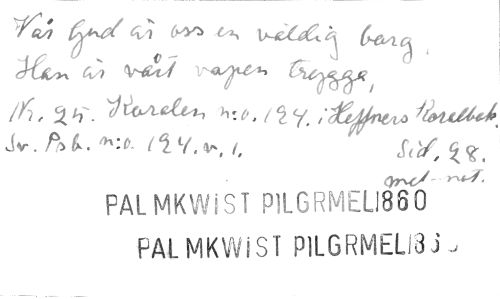 Vår Gud är oss en väldig borg,
Han är vårt vapen trygga,
Nr. 25. Koralen n:o. 124. i Heffners Koralbok,
Sv. Psb. n:o 124. v. 1.
Sid. 28.
mel-not.
PALMKWiST PILGRMEL1860
PALMKWiST PILGRMEL186